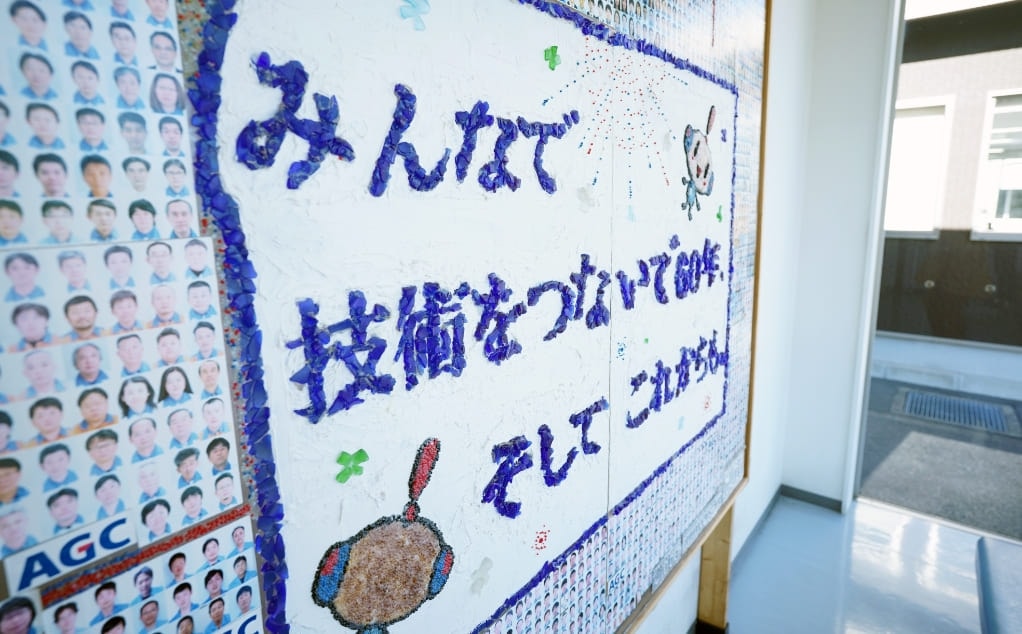 みんなで
技術をつないで60年、
そして これからも。
AGC
AGC
AGC